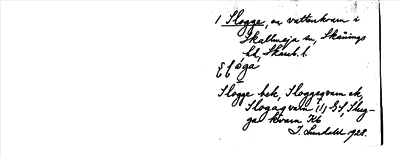 1 Slogge, en vattenkvarn i
Skallmeja sn, Skånings
hd, Skarab. l.
Slogge bek, Sloggeqvarn ek,
Slogaqvarn (1) GS, Slog-
ga kvarn Kb
I. Lundahl 1928.